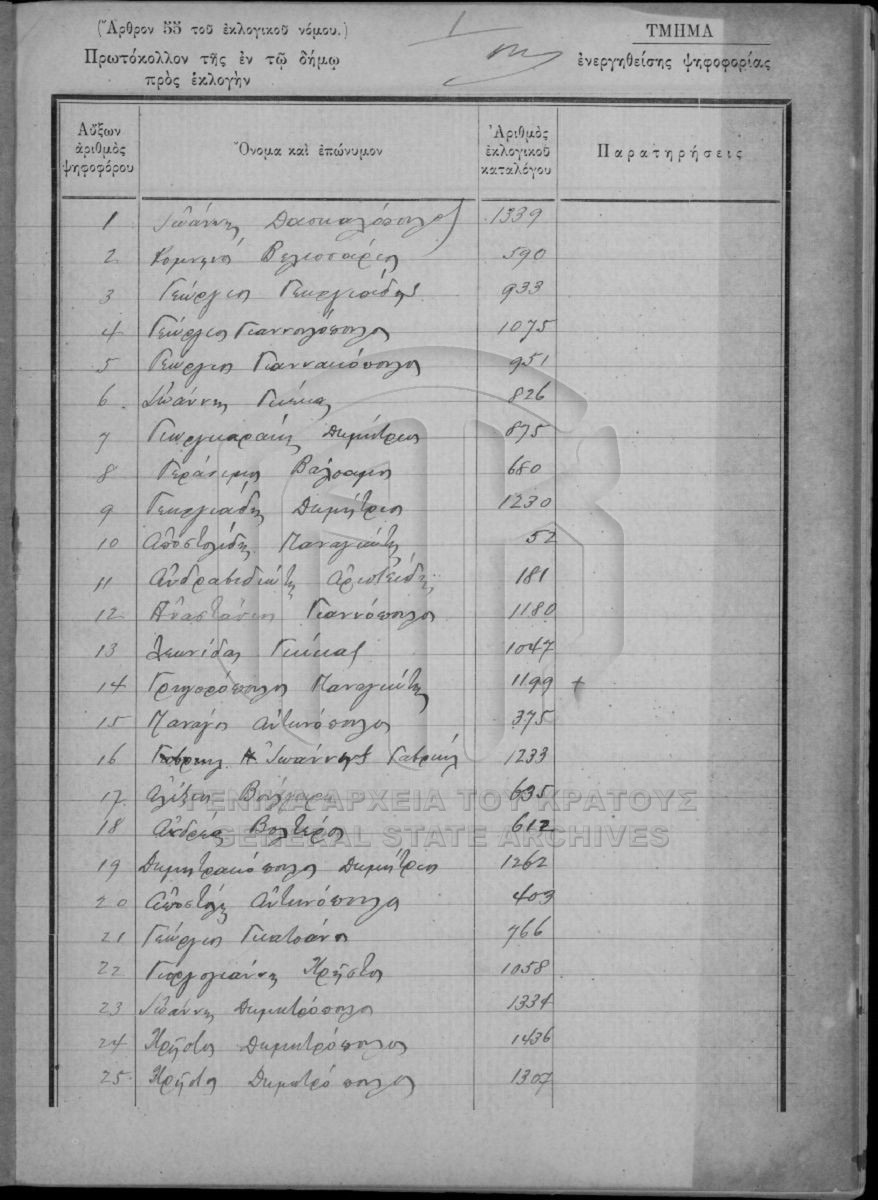 (Ἄρθρον 55 τοῦ ἐκλογικοῦ νόμου.)
1
ΤΜΗΜΑ
Πρωτόκολλον τῆς ἐν τῷ δήμῳ
ἐνεργηθείσης ψηφοφορίας
πρὸς ἐκλογὴν
Αὔξων ἀριθμὸς ψηφοφόρου
Ὄνομα καὶ ἐπώνυμον
Ἀριθμὸς ἐκλογικοῦ καταλόγου
Παρατηρήσεις
1 Ἰωάννης Δασκαλόπουλος 1339
2 Κομνηνὸς Βελισσάριος 590
3 Γεώργιος Γεωργιάδης 933
4 Γεώργιος Γιαννουλόπουλος 1075
5 Γεώργιος Γιαννακόπουλος 951
6 Ἰωάννης Γκίκας 826
7 Γεωργακαράκης Δημήτριος 875
8 Γεράσιμος Βάλσαμος 680
9 Γεωργιάδης Δημήτριος 1230
10 Ἀποστολίδης Παναγιώτης 52
11 Ἀνδραβιδιώτης Ἀριστείδης 181
12 Ἀναστάσιος Γιαννόπουλος 1180
13 Λεωνίδας Γκίκας 1047
14 Γρηγορόπουλος Παναγιώτης 1199 +
15 Πανάγος Ἀντωνόπουλος 375
16 Ἰωάννης Γαβριήλ 1233
17 Ἀλέξιος Βούλγαρης 635
18 Ἀνδρέας Βολτέρος 612
19 Δημητρακόπουλος Δημήτριος 1262
20 Ἀπόστολος Ἀντωνόπουλος 403
21 Γεώργιος Γκατσάνος 766
22 Γιωργογιάννης Χρῆστος 1058
23 Ἰωάννης Δημητρόπουλος 1334
24 Χρῆστος Δημητρόπουλος 1436
25 Χρῆστος Δημητρόπουλος 1307
ΓΕΝΙΚΑ ΑΡΧΕΙΑ ΤΟΥ ΚΡΑΤΟΥΣ
GENERAL STATE ARCHIVES